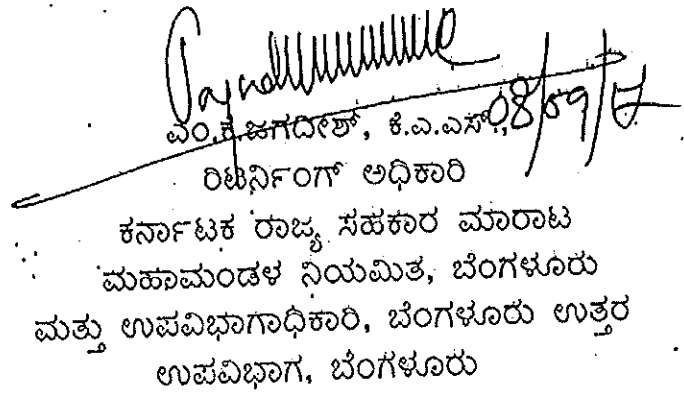 ಎಂ.ಕೆ.ಜಗದೀಶ್, ಕೆ.ಎ.ಎಸ್.,
ರಿಟರ್ನಿಂಗ್ ಅಧಿಕಾರಿ
ಕರ್ನಾಟಕ ರಾಜ್ಯ ಸಹಕಾರ ಮಾರಾಟ
ಮಹಾಮಂಡಳ ನಿಯಮಿತ, ಬೆಂಗಳೂರು
ಮತ್ತು ಉಪವಿಭಾಗಾಧಿಕಾರಿ, ಬೆಂಗಳೂರು ಉತ್ತರ
ಉಪವಿಭಾಗ, ಬೆಂಗಳೂರು